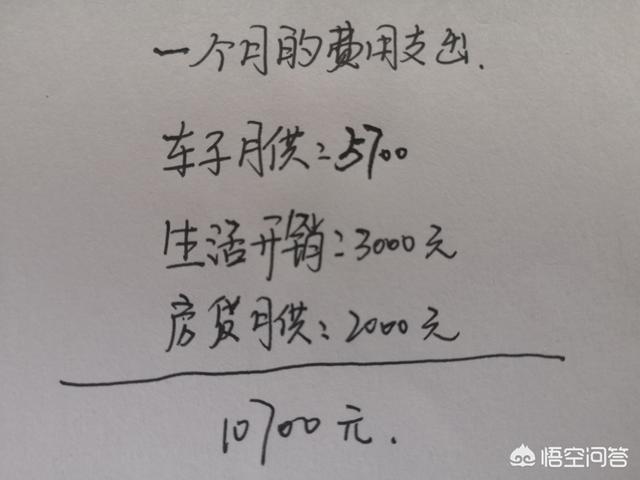 一个月的费用支出.
车子月供:5700
生活开销:3000元
房贷月供:2000元
10700元.
悟空问答